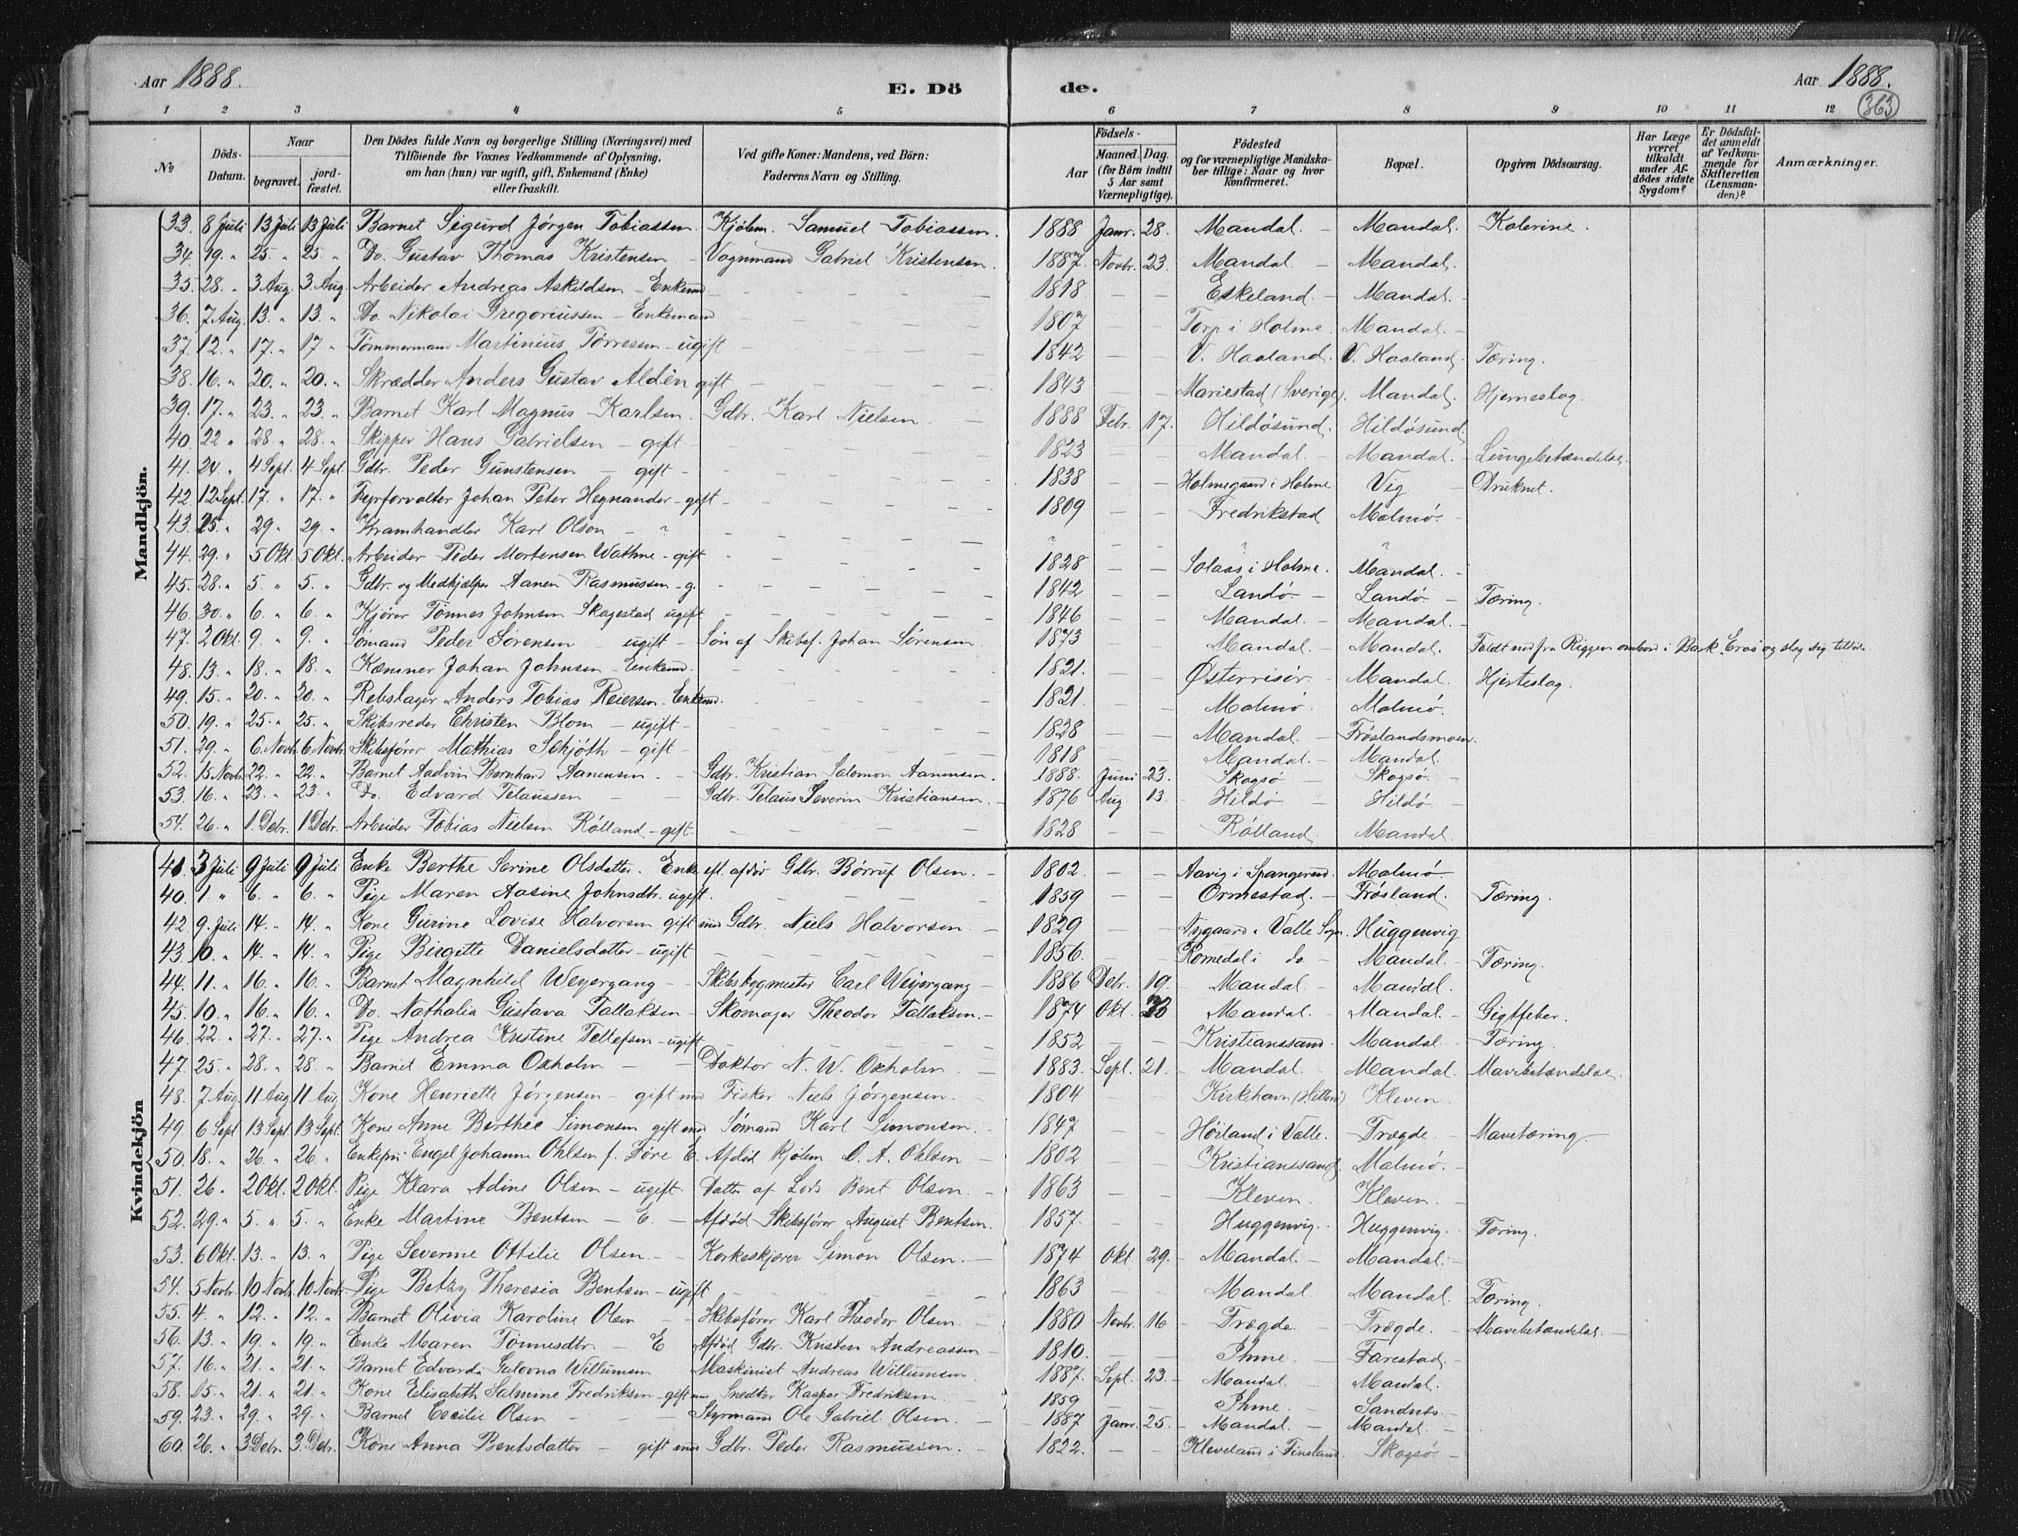 Aar 1888.
E. Dö
de.
Aar 1888.
363
1 2 3 4 5 6 7 8 9 10 11 12
No
Döds-Datum.
Naar
begravet.
jord-fæstet.
Den Dödes fulde Navn og borgerlige Stilling (Næringsvei) med
Tilföiende for Voxnes Vedkommende af Oplysning,
om han (hun) var ugift, gift, Enkemand (Enke)
eller fraskilt.
Ved gifte Koner: Mandens, ved Börn:
Faderens Navn og Stilling.
Födsels-
Aar
Maaned. Dag.
(for Börn indtil
5 Aar samt
Værnepligtige).
Födested
og for værnepligtige Mandska-
ber tillige: Naar og hvor
konfirmeret.
Bopæl.
Opgiven Dödsaarsag.
Har Læge
været
tilkaldt
under Af-
dödes sidste
Sygdom?
Er Dödsfal-
det anmeldt
af Vedkom-
mende for
Skifteretten
(Lensman-
den)?
Anmærkninger.
Mandkjön.
33. 8 Juli 13 Juli 13 Juli Barnet Sigurd Jørgen Tobiassen. Kjøbm. Samuel Tobiassen. 1888 Janr. 28. Mandal. Mandal. Kolerine.
34. 19. " 25. " 25. " Do. Gustav Thomas Kristensen Vognmand Gabriel Kristensen. 1887. Novbr. 23. Mandal. Mandal.
35. 28. " 3 Aug 3. Aug. Arbeider Andreas Askildsen - Enkemd. 1818 Eskeland. Mandal.
36. 7 Aug. 13. " 13. " Do. Nikolai Gregoriussen - Enkemand 1807 Torp i Holme. Mandal.
37. 12. " 17. " 17 " Tømmermand Martinius Tørressen - ugift 1842 V. Haaland. V. Haaland. Tæring.
38. 16. " 20. " 20. " Skrædder Anders Gustav Aldèn gift 1843 Mariestad (Sverige). Mandal. Hjerneslag.
39. 17. " 23. " 23. " Barnet Karl Magnus Karlsen. Gdbr. Karl Nielsen 1888 Febr. 17. Hildøsund. Hildøsund.
40. 22 " 28 " 28. " Skipper Hans Gabrielsen - gift 1823 Mandal. Mandal. Lungebetændelse.
41. 24. " 4 Sept. 4 Sept. Gdbr. Peder Gunstensen - gift 1838 Holmegaard i Holme Vig Druknet.
42. 12 Sept. 17. " 17. " Fyrforvalter Johan Peter Hegnander - gift 1809 Fredrikstad Malmø.
43. 25 " 29 " 29. " Kramhandler Karl Olson - "
44. 29. " 5 Okt. 5 Okt. Arbeider Peder Mortensen Wathne - gift 1828 Solaas i Holme. Mandal.
45. 28. " 5. " 5. " Gdbr. og Medhjælper Aanen Rasmussen - g. 1842 Landø. Landø Tæring.
46. 30. " 6. " 6. " Kjører Tønnes Johnsen Skagestad ugift 1846 Mandal. Mandal.
47. 2 Okt. 9. " 9. " Sømand Peder Sørensen ugift - Søn af Skibsf. Johan Sørensen. 1873 Mandal. Mandal. Faldt ned fra Riggen ombord i Bark Eros og slog sig tildøde
48. 13. " 18. " 18. " Kæmner Johan Johnsen - Enkemd. 1821. Østerrisør. Mandal. Hjerteslag.
49. 15. " 20. " 20. " Rebslager Anders Tobias Reiersen - Enkemd. 1821. Malmø Malmø.
50. 19. " 25. " 25. " Skibsreder Christen Blom - ugift 1828 Mandal. Frøslandsmoen.
51. 29. " 6. Novbr 6 Novbr. Skibsfører Mathias Schjøth - gift 1818 Mandal. Mandal.
52. 15 Novbr. 22. " 22. " Barnet Aadvin Bernhard Aanensen. Gdbr. Kristian Salomon Aanensen. 1888. Juni 23. Skogsø Skogsø.
53. 16. " 23. " 23. " Do. Edvard Telaussen Gdbr. Telaus Severin Kristiansen. 1876 Aug 13. Hildø Hildø
54. 26. " 1. Debr. 1 Debr. Arbeider Tobias Nielsen Rølland - gift 1828 Rølland. Mandal.
Kvindekjön
41. 3 Juli 9 Juli 9 Juli Enke Berthe Serine Olsdatter. Enke eft. afdød Gdbr. Børruf Olsen. 1802 Aavig i Spangereid. Malmø
40. 1 " 6. " 6. " Pige Maren Aasine Johnsdtr. ugift 1859 Ormestad. Frøsland. Tæring.
42. 9 Juli 14. " 14. " Kone Gurine Lovise Halvorsen gift med Gdbr. Niels Halvorsen. 1829 Nygaard i Valle Sogn. Huggenvig
43. 10. " 14. " 14. " Pige Birgitte Danielsdatter - ugift 1856. Romedal i do Mandal. Tæring.
44. 11. " 16. " 16. " Barnet Magnhild Weyergang Skibsbygmester Carl Weyergang 1886 Debr. 19. Mandal Mandal.
45. 10. " 16. " 16. " Do. Nathalia Gustava Tallaksen - Skomager Theodor Tallaksen. 1874 Okt. Mandal. Mandal. Gigtfeber.
46. 22. " 27. " 27. " Pige Andrea Kristine Tellefsen - ugift 1852 Kristianssand. Mandal Tæring.
47. 25. " 28. " 28. " Barnet Emma Oxholm Doktor N. W. Oxholm 1883 Sept. 21. Mandal. Mandal. Mavebetændelse.
48. 7 Aug. 11 Aug 11 Aug. Kone Henriette Jørgensen - gift med Fisker Niels Jørgensen. 1804 Kirkehavn (Hitterø) Kleven.
49. 6 Sept 13 Sept. 13 Sept. Kone Anne Berthee Simonsen gift med Sømand Karl Simonsen. 1847 Høiland i Valle. Trægde. Mavetæring.
50. 18. " 26. " 26. " Enkefru Engel Johanne Ohlsen f. Føre E. Afdød Kjøbm O. A. Ohlsen 1802 Kristianssand Malmø.
51. 26. " 2 Okt. 2 Okt. Pige Klara Adine Olsen - ugift. Datter af Lods Bent Olsen. 1863 Kleven. Kleven.
52. 29. " 5. " 5. " Enke Martine Bentsen - E - Afdød Skibsfører August Bentsen. 1857. Huggenvig. Huggenvig. Tæring.
53. 6 Okt. 13. " 13. " Pige Severine Ottilie Olsen. Korkeskjærer Simon Olsen. 1874 Okt. 29. Mandal. Mandal.
54. 5 Novbr. 10 Novbr. 10 Novbr. Pige Betzy Theresia Bentsen - ugift 1863 Mandal Mandal. Tæring.
55. 4. " 12. " 12. " Barnet Olivia Karoline Olsen Skibsfører Karl Theodor Olsen. 1880 Novbr. 16 Trægde. Trægde. Mavebetændelse.
56. 13. " 19. " 19. " Enke Maren Tønnesdtr. - E Afdød Gdbr. Kristen Andreassen 1810. Ihme. Farestad.
57. 16. " 21. " 21. " Barnet Edvarda Gulovna Willumsen Maskinist Andreas Willumsen. 1887. Sept. 23. Mandal. Mandal.
58. 15. " 21. " 21. " Kone Elisabeth Salmine Fredriksen - gift med Snedker Kaspar Fredriksen. 1859 Ihme. Sandnes.
59. 23. " 29. " 29. " Barnet Cecilie Olsen Styrmand Ole Gabriel Olsen. 1887 Janr. 25. Mandal. Mandal.
60. 26. " 3 Debr. 3. Debr. Kone Anna Bentsdatter - gift med Gdbr. Peder Rasmussen. 1822. Kleveland i Finsland. Skogsø.